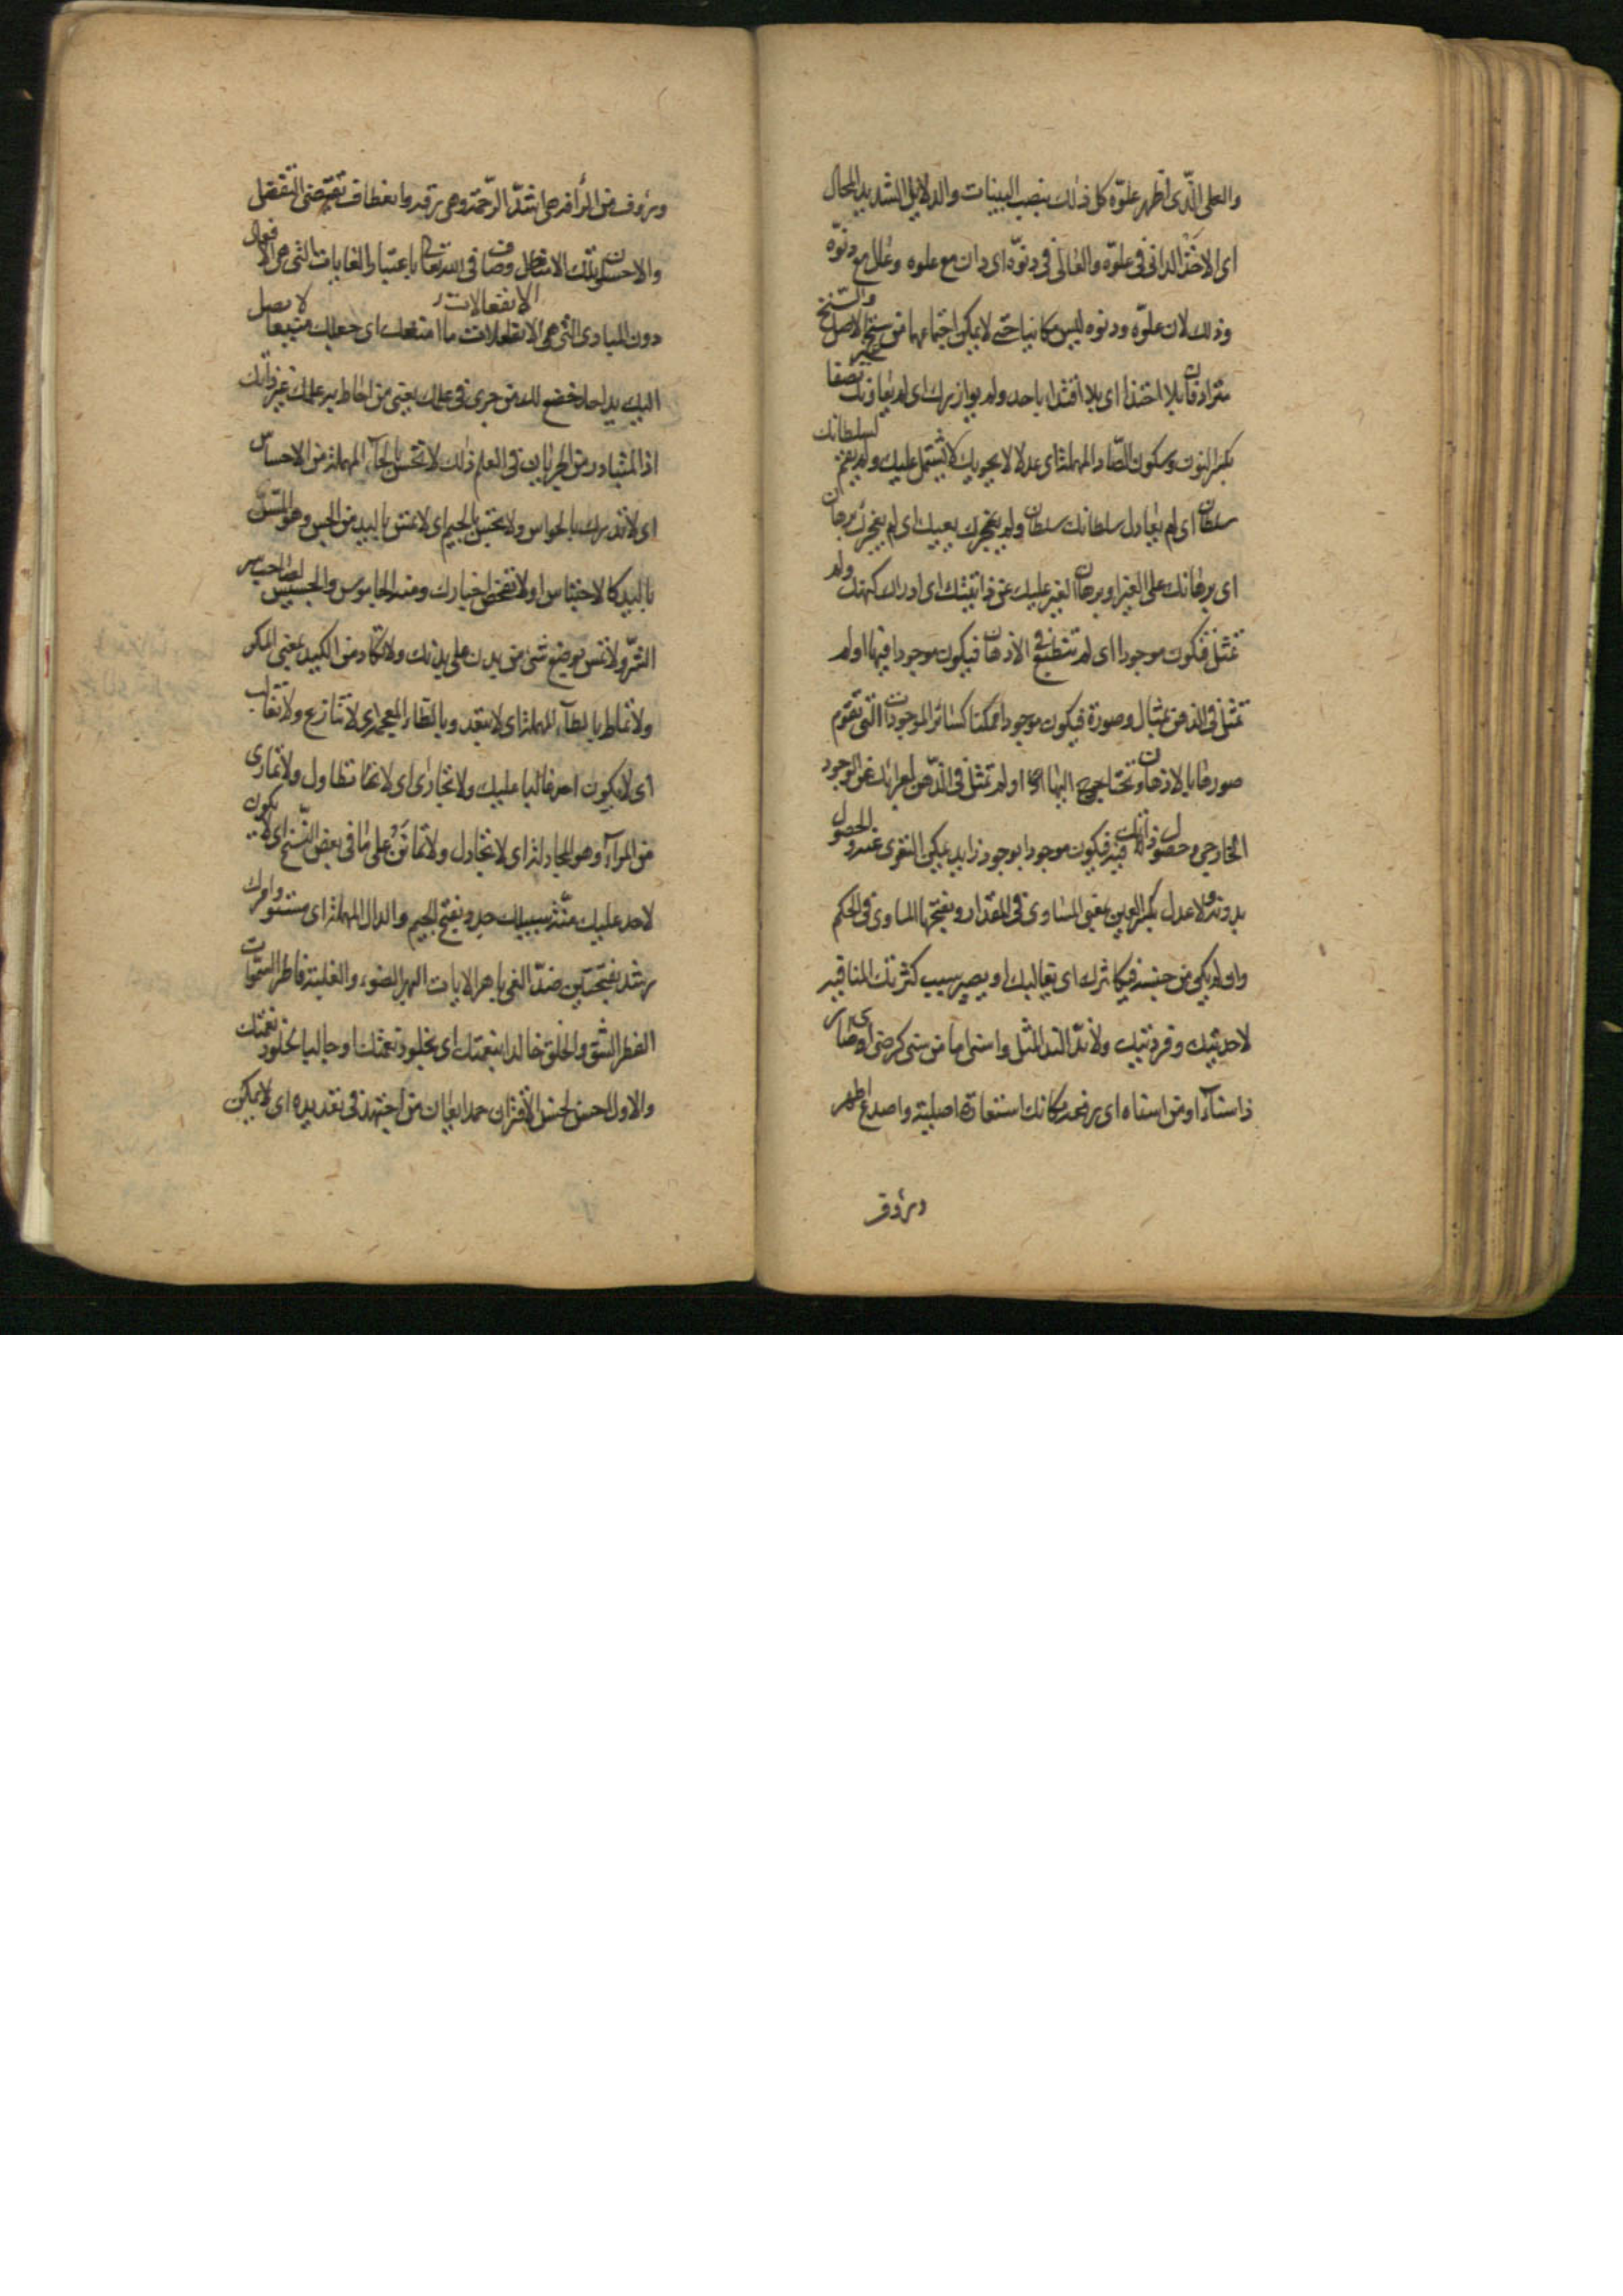 والعلى الذى اظهر علوّه كل ذلك بنصب البينات والدلايل الشديد المحال
اى الاخذ الدانى فى علوّه والعالى فى دنوّه اى دان مع علوه وعال مع دنوّه
وذلك لان علوّه ودنوه ليس مكانيا حتى لا يمكن اجتماعهما من سنخ والسنخ الاصل
مترادفان بلا احتذا اى بلا اقتدا باحد ولم يوازرك اى لم يعاونك
بكسر النون وسكون الصاد المهملة اى عدلا لا يحويك لا يشتمل عليك ولم يقم لسلطانك
سلطان اى لم يعادل سلطانك سلطان ولم يعجزك يعييك اى لم يعجزك برهان
اى برهانك على الغير او برهان الغير عليك عن ذاتيتك اى ادراك كنهك ولم
تمثل فتكون موجودا اى لم تنطبع فى الاذهان فيكون موجودا فيها او لم
تمثل فى الذهن بمثال وصورة فيكون موجودا ممكنا كسائر الموجودات التى تقوم
صورها بالاذهان وتحتاج اليها او لم تمثل فى الذهن لعرائك عن الوجود
الخارجى وحصول ذاتك فيه فيكون موجودا بوجود زايد يمكن التعرى عنه والحصول
بدونه ولا عدل بكسر العين بمعنى المساوى فى المقدار وبفتحها المساوى فى الحكم
او لم يكن من جنسه فيكاثرك اى يغالبك او يصير سبب كثرتك المنافية
لاحديتك وفردنيتك ولا ندّ الند المثل واسنى اما من سنى كرضى اى صار
ذا سناء او من اسناه اى رفعه مكانك استعارة اصلية واصدع اظهر
ورؤف
ورؤف من الرأفة هى اشدّ الرحمة وهى رقة وانعطاف تقتضى التفضل
والاحسان وتلك الاوصاف فى الله تعالى باعتبار الغايات التى هى الافعال
دون المبادى التى هى الانفعالات ما امنعك اى جعلك منيعا لا يصل
اليك يد احد خضع لك من جرى فى علمك يعنى من احاط به علمك غير ذاتك
اذ المتبادر من الجريان فى العلم ذلك لا تحس بالحاء المهملة من الاحساس
اى لا تدرك بالحواس ولا تجس بالجيم اى لا تمس باليد من الجس وهو المس
باليد كالاجتساس او لا تفحص اخبارك ومنه الجاسوس والجسيس لصاحب سر
الشر ولا تمس بوضع شئ من بدن على بدنك ولا تكاد من الكيد بمعنى المكر
ولا تماط بالطاء المهملة اى لا تبعد وبالظاء المعجمة اى لا تنازع ولا تغالب
اى لا يكون احد غالبا عليك ولا تجارى اى لا تطاول ولا تمارى
من المراء وهو المجادلة اى لا تجادل ولا تمانن على ما فى بعض النسخ اى لا يكون
لاحد عليك منّة سبيلك جدد بفتح الجيم والدال المهملة اى مستو وامرك
رشد بفتحتين ضدّ الغى باهر الايات البهر الضوء والغلبة فاطر السموات
الفطر الشق والخلق خالدا بنعمتك اى بخلود نعمتك او جاليا بخلود نعمتك
والاول احسن لحسن الاقتران حمدا يعان من اجتهد فى تعديده اى لا يمكن